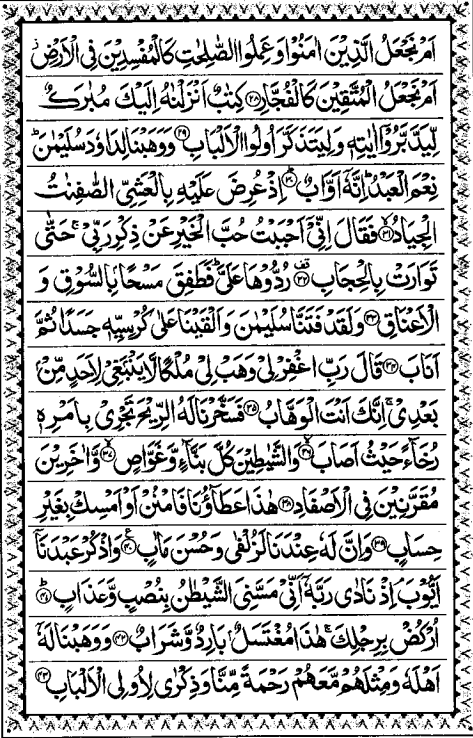 اَمْ نَجْعَلُ الَّذِيْنَ اٰمَنُوْا وَعَمِلُوا الصّٰلِحٰتِ كَالْمُفْسِدِيْنَ فِى الْاَرْضِ ز
اَمْ نَجْعَلُ الْمُتَّقِيْنَ كَالْفُجَّارِ ﴿۲۸﴾ كِتٰبٌ اَنْزَلْنٰهُ اِلَيْكَ مُبٰرَكٌ
لِّيَدَّبَّرُوْۤا اٰيٰتِهٖ وَلِيَتَذَكَّرَ اُولُوا الْاَلْبَابِ ﴿۲۹﴾ وَوَهَبْنَا لِدَاوٗدَ سُلَيْمٰنَ ؕ
نِعْمَ الْعَبْدُ ؕ اِنَّهٗۤ اَوَّابٌ ﴿۳۰﴾ اِذْ عُرِضَ عَلَيْهِ بِالْعَشِىِّ الصّٰفِنٰتُ
الْجِيَادُ ﴿۳۱﴾ فَقَالَ اِنِّىْۤ اَحْبَبْتُ حُبَّ الْخَيْرِ عَنْ ذِكْرِ رَبِّىْ ۚ حَتّٰى
تَوَارَتْ بِالْحِجَابِ ﴿۳۲﴾ رُدُّوْهَا عَلَىَّ ؕ فَطَفِقَ مَسْحًۢا بِالسُّوْقِ وَ
الْاَعْنَاقِ ﴿۳۳﴾ وَلَقَدْ فَتَنَّا سُلَيْمٰنَ وَاَلْقَيْنَا عَلٰى كُرْسِيِّهٖ جَسَدًا ثُمَّ
اَنَابَ ﴿۳۴﴾ قَالَ رَبِّ اغْفِرْ لِىْ وَهَبْ لِىْ مُلْكًا لَّا يَنْۢبَغِىْ لِاَحَدٍ مِّنْۢ
بَعْدِىْ ۚ اِنَّكَ اَنْتَ الْوَهَّابُ ﴿۳۵﴾ فَسَخَّرْنَا لَهُ الرِّيْحَ تَجْرِىْ بِاَمْرِهٖ
رُخَآءً حَيْثُ اَصَابَ ﴿۳۶﴾ وَالشَّيٰطِيْنَ كُلَّ بَنَّآءٍ وَّغَوَّاصٍ ﴿۳۷﴾ وَّاٰخَرِيْنَ
مُقَرَّنِيْنَ فِى الْاَصْفَادِ ﴿۳۸﴾ هٰذَا عَطَآؤُنَا فَامْنُنْ اَوْ اَمْسِكْ بِغَيْرِ
حِسَابٍ ﴿۳۹﴾ وَاِنَّ لَهٗ عِنْدَنَا لَزُلْفٰى وَحُسْنَ مَاٰبٍ ﴿۴۰﴾ وَاذْكُرْ عَبْدَنَاۤ
اَيُّوْبَ ۘ اِذْ نَادٰى رَبَّهٗۤ اَنِّىْ مَسَّنِىَ الشَّيْطٰنُ بِنُصْبٍ وَّعَذَابٍ ﴿۴۱﴾
اُرْكُضْ بِرِجْلِكَ ۚ هٰذَا مُغْتَسَلٌۢ بَارِدٌ وَّشَرَابٌ ﴿۴۲﴾ وَوَهَبْنَا لَهٗۤ
اَهْلَهٗ وَمِثْلَهُمْ مَّعَهُمْ رَحْمَةً مِّنَّا وَذِكْرٰى لِاُولِى الْاَلْبَابِ ﴿۴۳﴾